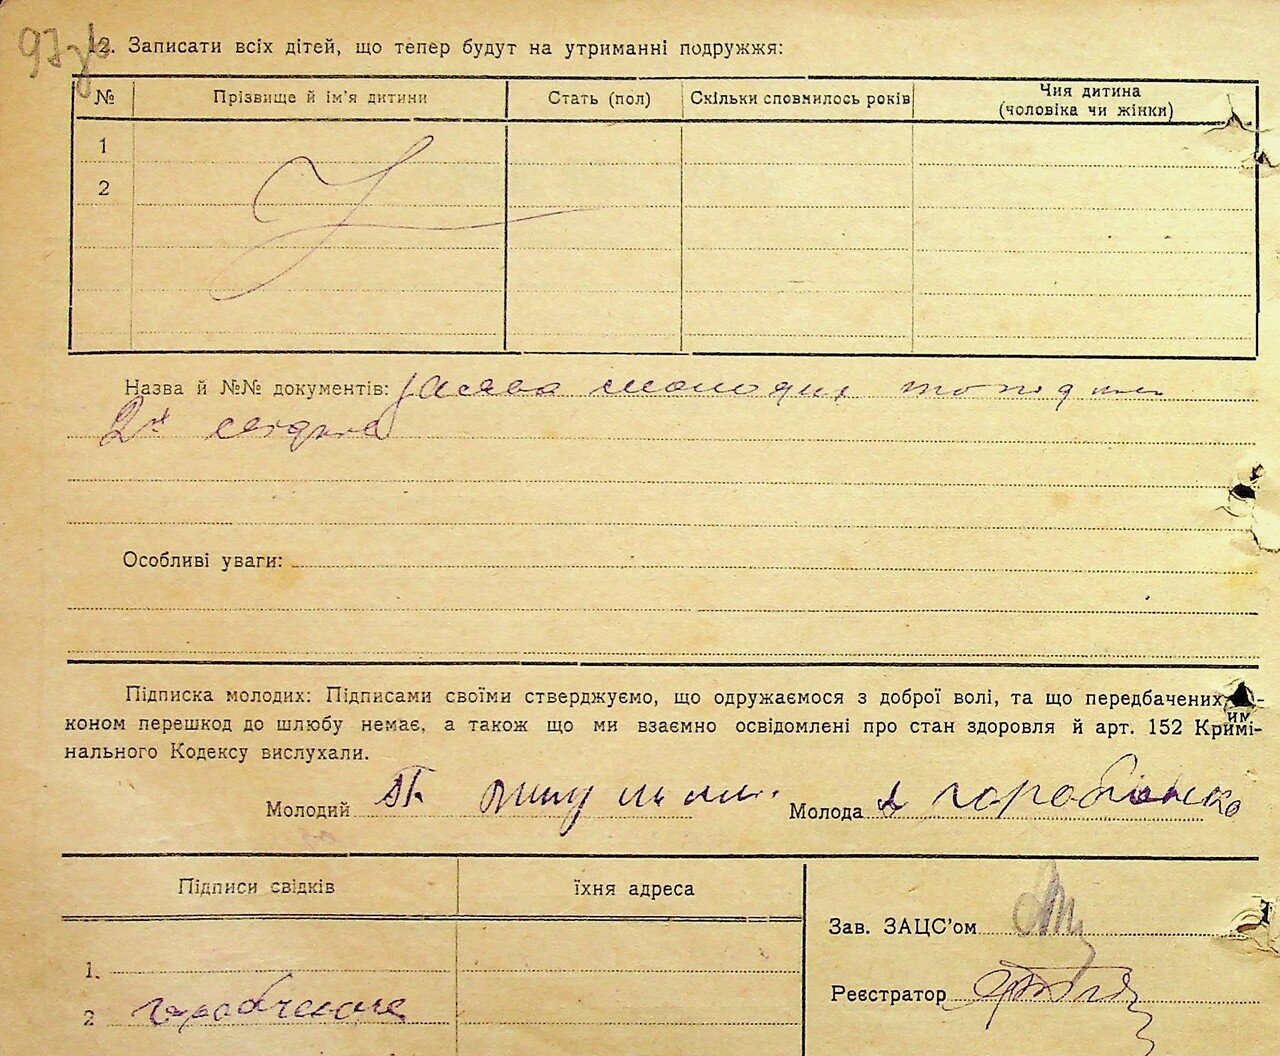 97зв
12. Записати всіх дітей, що тепер будут на утриманні подружжя:
№ Прізвище й ім'я дитини Стать (пол) Скільки сповнилось років Чия дитина
(чоловіка чи жінки)
1
2
Назва й №№ документів: заява молодих
2х свідків
Особливі уваги:
Підписка молодих: Підписами своїми стверджуємо, що одружаємося з доброї волі, та що передбачених
коном перешкод до шлюбу немає, а також що ми взаємно освідомлені про стан здоровля й арт. 152 Кримі-
нального Кодексу вислухали.
Молодий Молода горобченко
Підписи свідків їхня адреса
Зав. ЗАЦС'ом
1.
Реєстратор
2